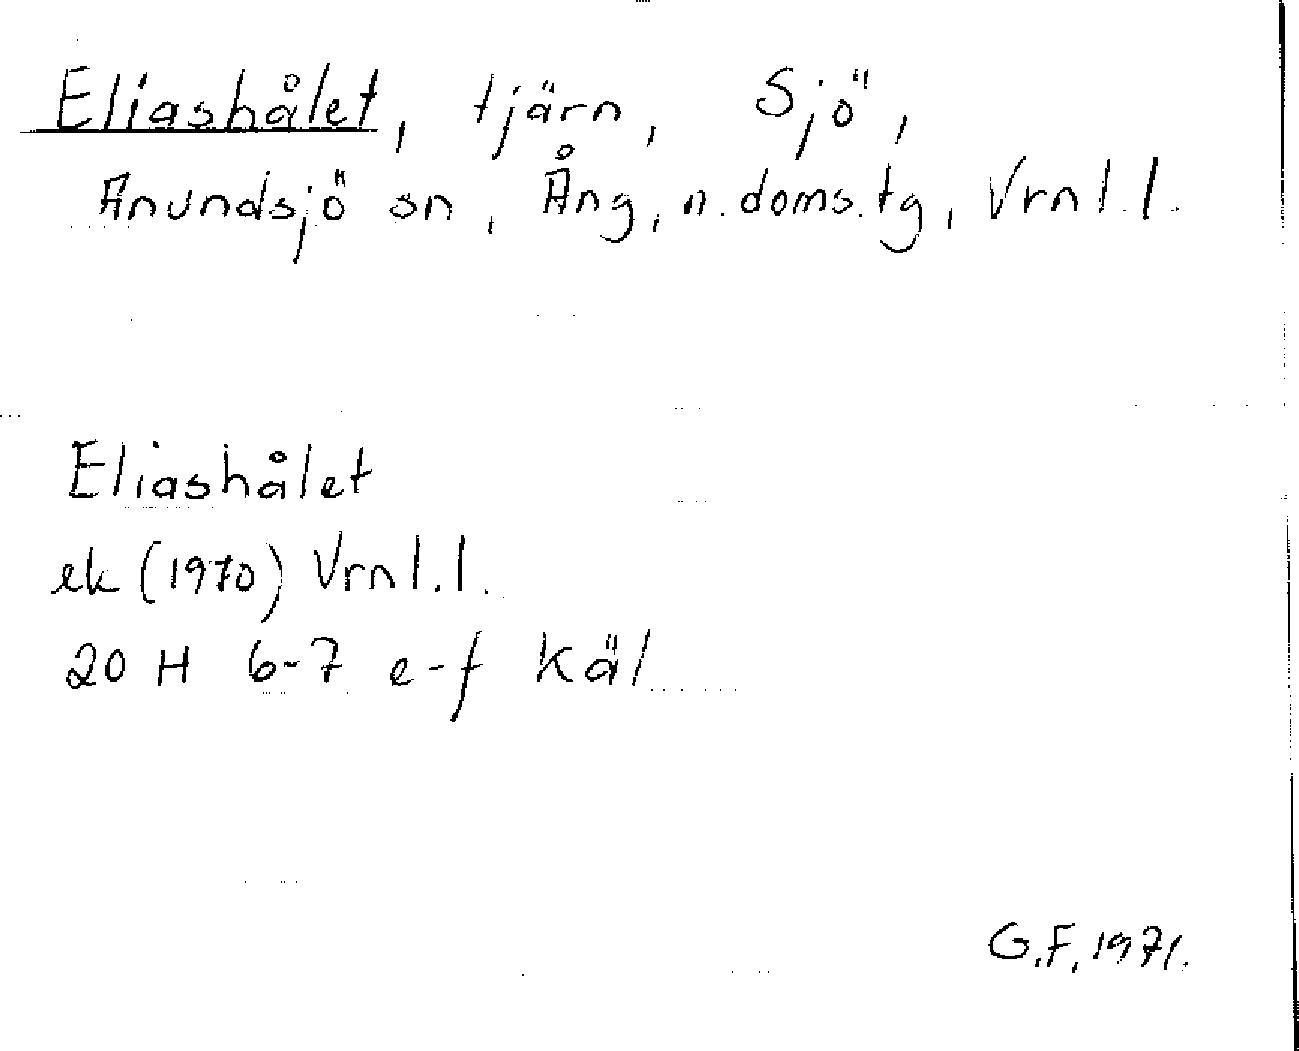 Eliashålet, tjärn, Sjö,
Anundsjö sn, Ång, n. doms. tg, Vrnl.l.
Eliashålet
ek (1970) Vrnl.l.
20 H 6-7 e-f Käl
G.F. 1971.